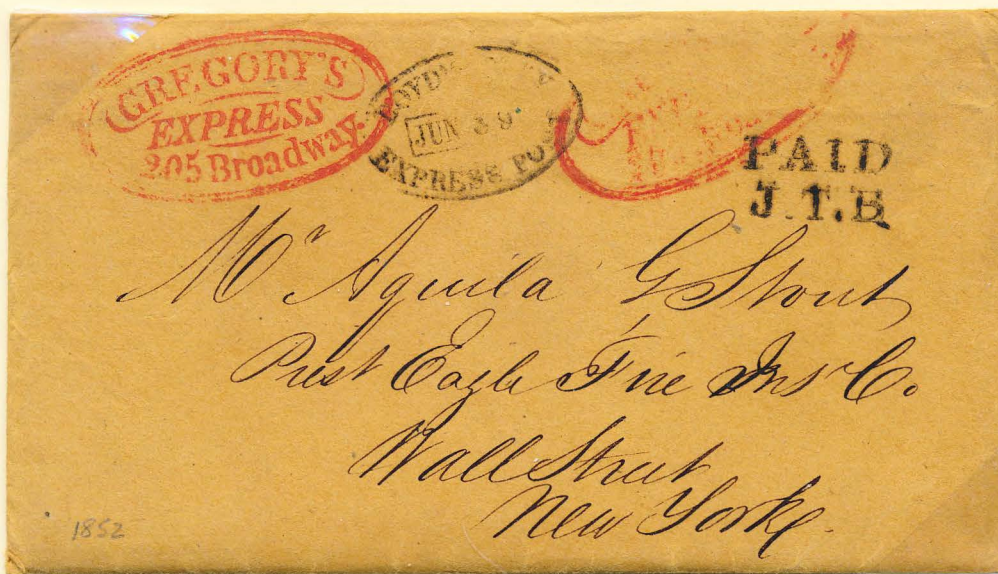 GREGORY'S
EXPRESS
205 Broadway.
BOYD'S CITY
JUN 39
EXPRESS POST
PAID
J.T.B
Mr Aquila G Stout
Prest Eagle Fire Ins Co.
Wall Street
New York
1852